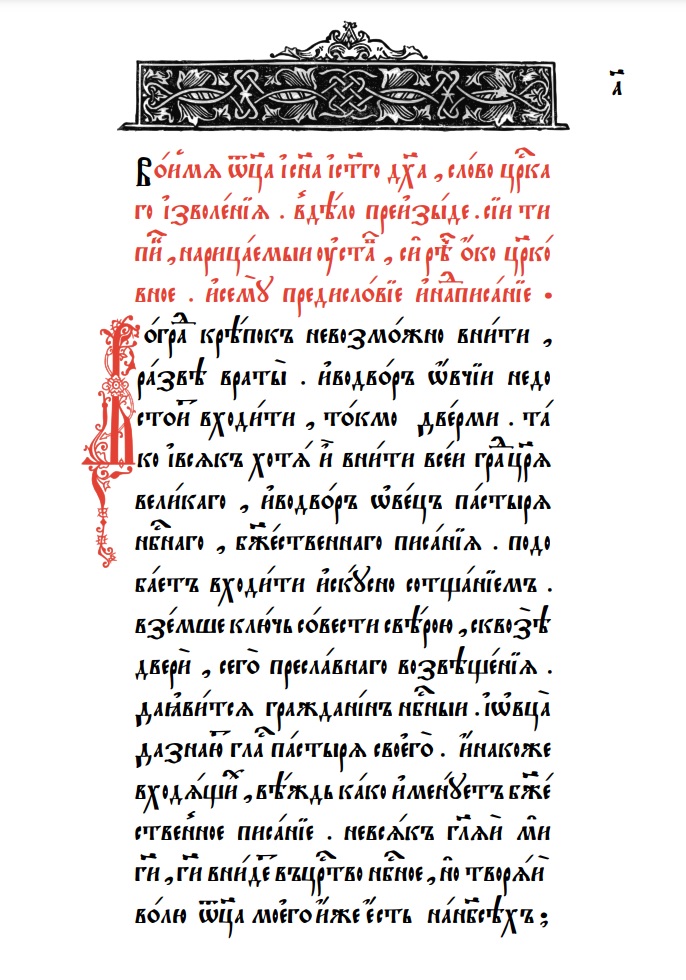 а҃
Во́и́мя ѿц҃а і҆сн҃а і҆ст҃го дх҃а , сло́во црⷭ҇ка
го і҆зволе́нїѧ . вдѣ́ло преи҆зы́де . сїи ти
пи҆́ , нарица́емыи оу҆ста́ⷡ , си̑ рѣⷱ҇ ѻ҆́ко цр҃ко́
вное . и҆сему̀ предисло́вїе и҆на́ⷣписа́нїе .
Во́граⷣ крѣ́покъ невозмо́жно вни́ти ,
ра́звѣ враты̀ . и҆водво́ръ ѻ҆́вчїи недо
стои҆́ входи́ти , то́кмо две́рми . та́
ко і҆всѧкъ хотѧ́и҆ вни́ти все́и граⷣ цр҃ѧ
вели́каго , и҆водво́ръ ѻ҆ве́цъ па́стырѧ
нбⷭ҇наго , бж҃е́ственнаго писа́нїѧ . подо
ба́етъ входи́ти и҆ску́сно сотща́нїемъ .
взе́мше клю́чь со́вести свѣ́рою , сквозѣ̀
двери̑ , сего̀ пресла́внаго возвѣще́нїѧ .
даꙗ҆ви́тсѧ гражⷣдани́нъ нбⷭ҇ныи . і҆ѻ҆вца̀
дазна́ю глаⷭ҇ па́стырѧ своего̀ . и҆́накоже
входѧ́щиⷯ , вѣ́ждь ка́ко и҆мену́етъ бж҃е́
стве́нное писа́нїе . невсѧ́къ гл҃ѧи̑ мѝ
гⷭ҇и , гⷭ҇и вни́деⷮ въцрⷭ҇тво нбⷭ҇ное , но̀ творѧ́и҆
во́лю ѿц҃а мое҆го и҆́же е҆́сть на́нб҃сѣ́хъ ;